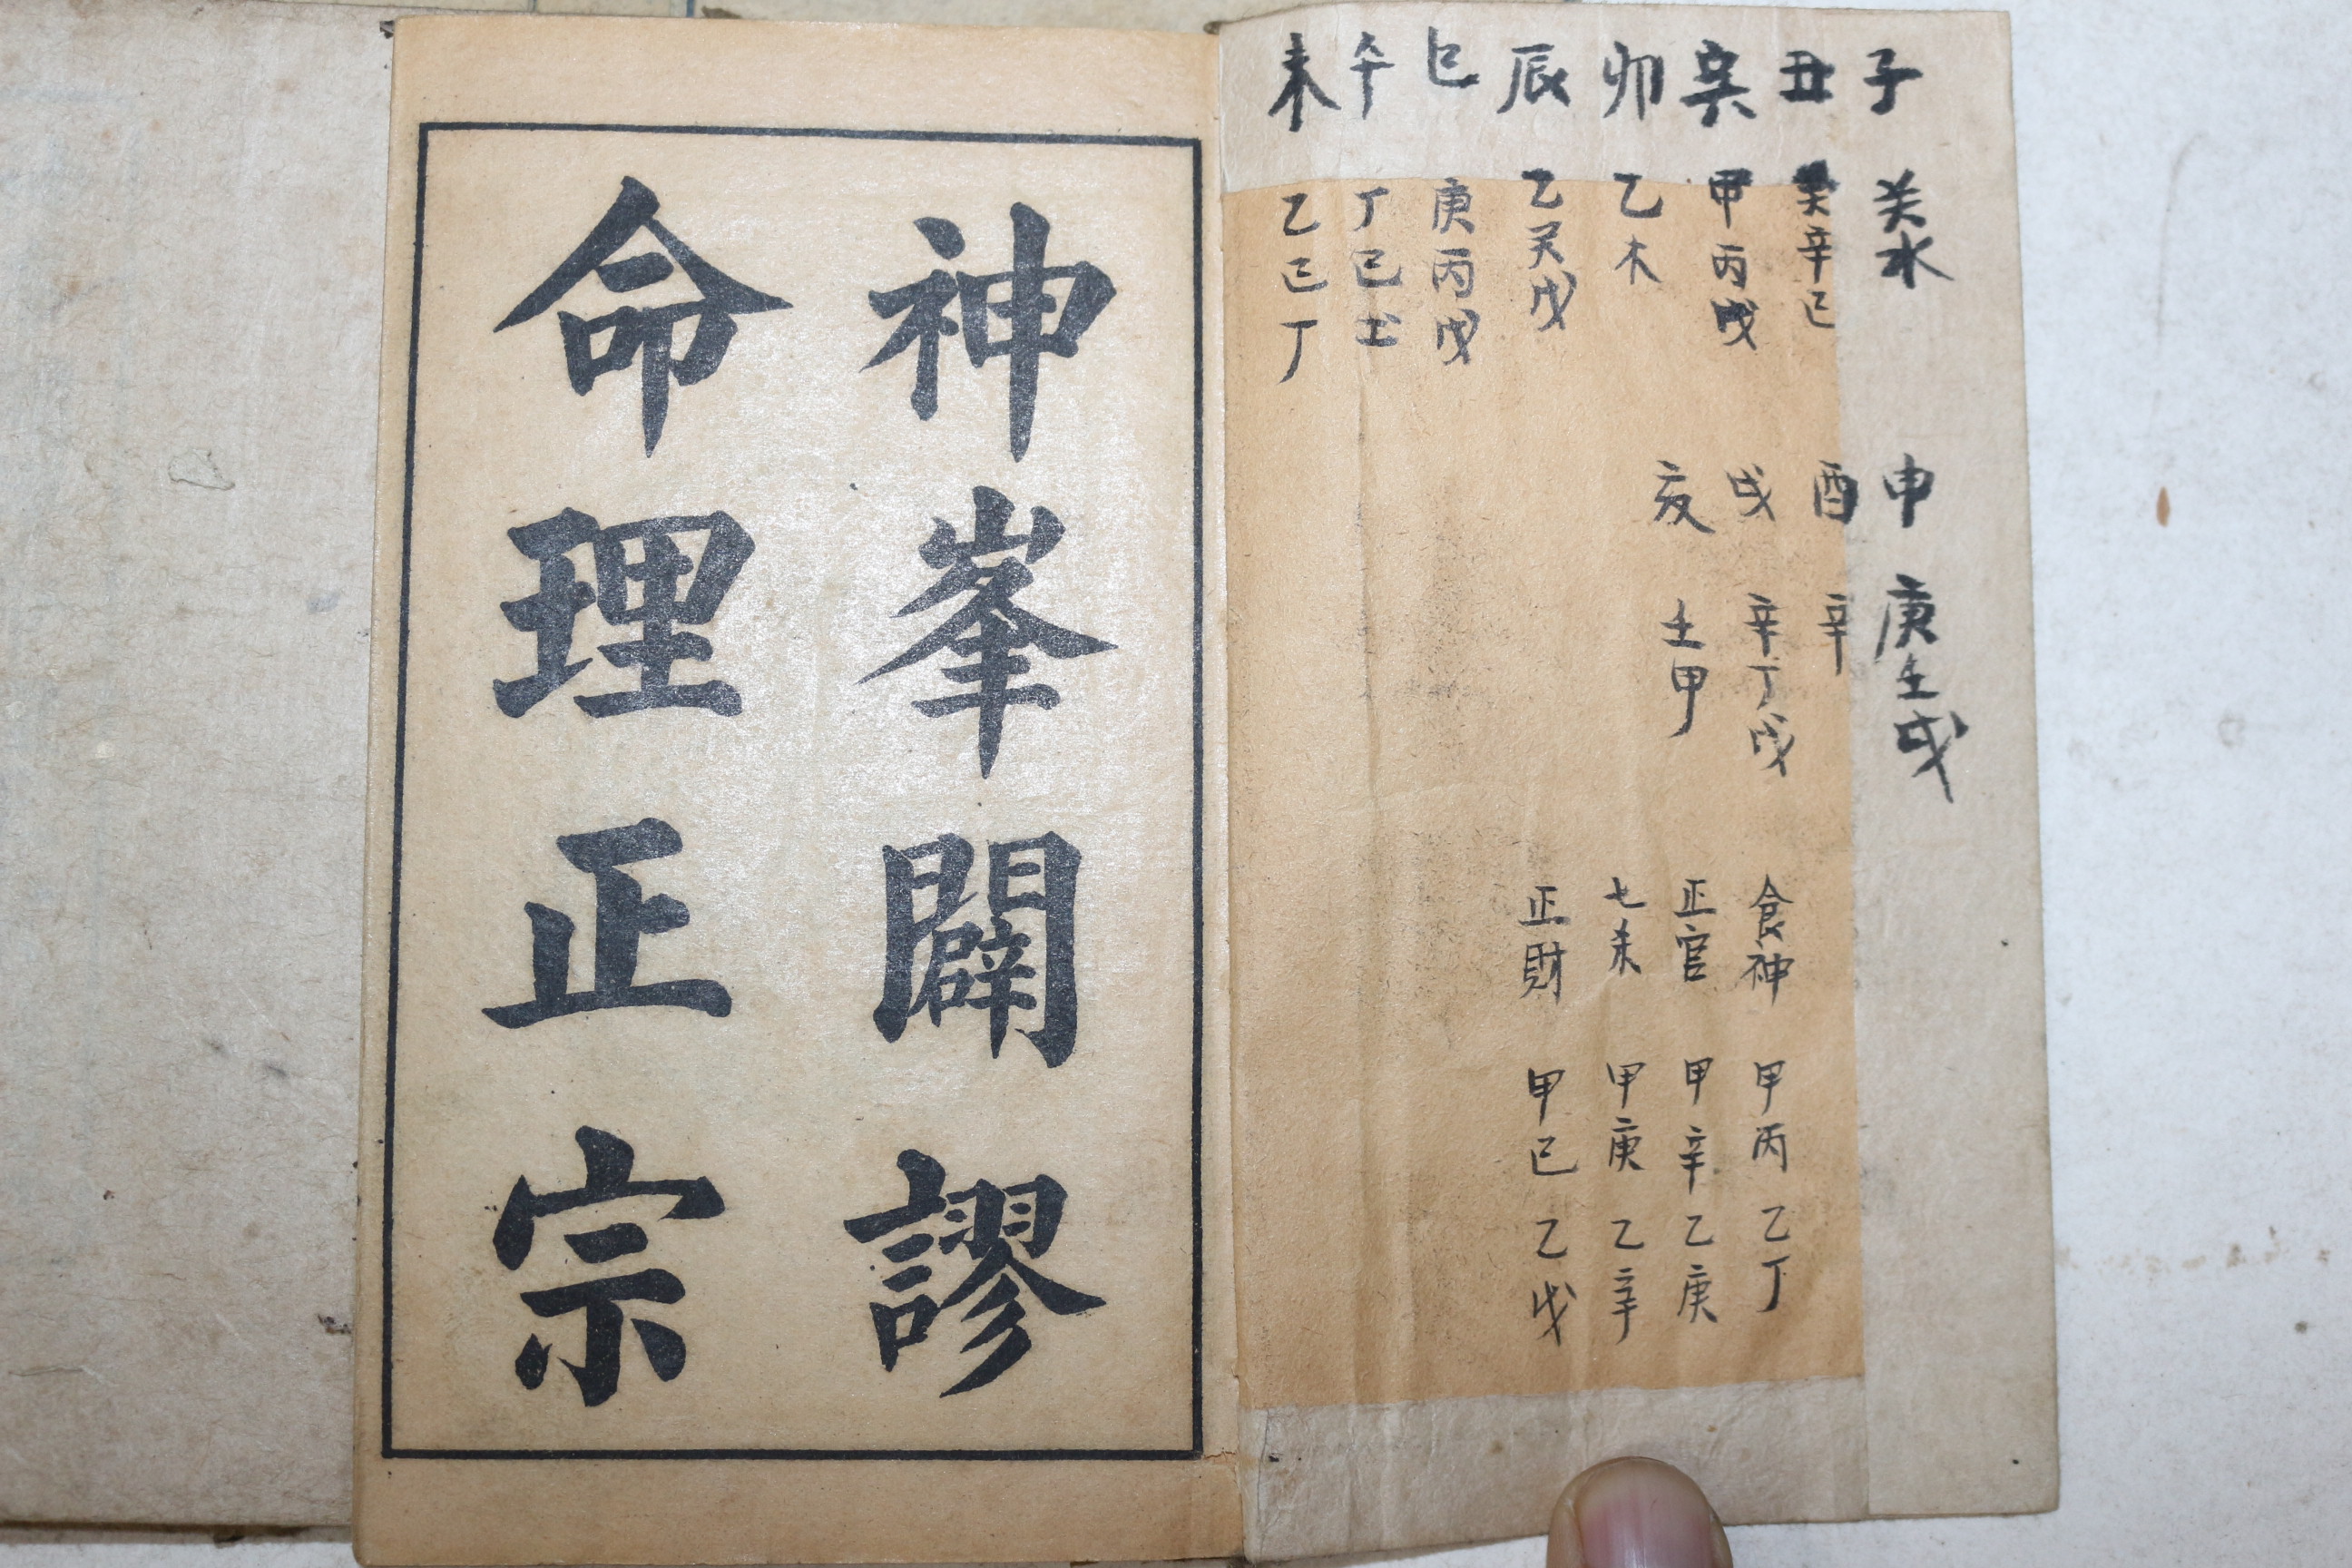 子 癸水
丑 癸辛己
寅 甲丙戊
卯 乙木
辰 乙癸戊
巳 庚丙戊
午 丁己土
未 乙己丁
申 庚壬戊
酉 辛
戌 辛丁戊
亥 壬甲
食神 甲丙 乙丁
正官 甲辛 乙庚
七杀 甲庚 乙辛
正財 甲己 乙戊
神峯闢謬
命理正宗